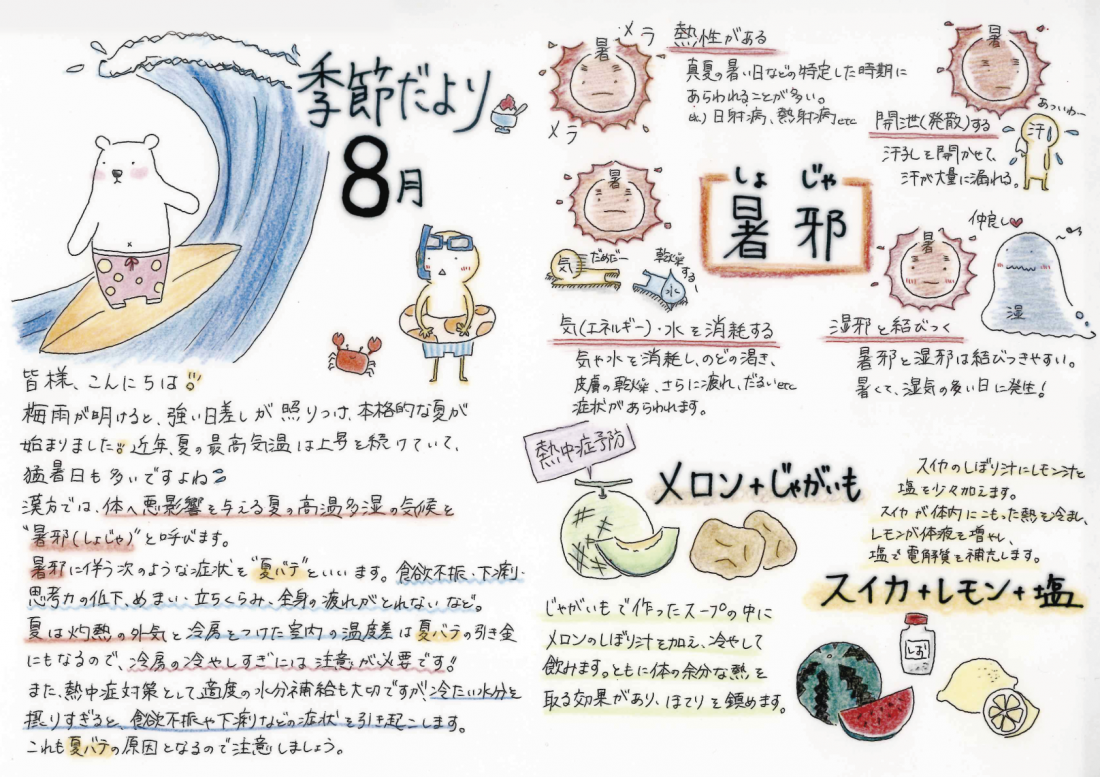 季節だより
8月
皆様、こんにちは
梅雨が明けると、強い日差しが照りつけ、本格的な夏が
始まりました!! 近年、夏の最高気温は上昇を続けていて、
猛暑日も多いですよね
漢方では、体へ悪影響を与える夏の高温多湿の気候を
"暑邪(しょじゃ)"と呼びます。
暑邪に伴う次のような症状を"夏バテ"といいます。食欲不振、下痢、
思考力の低下、めまい・立ちくらみ、全身の疲れがとれないなど。
夏は灼熱の外気と冷房をつけた室内の温度差は夏バテの引き金
にもなるので、冷房の冷やしすぎには注意が必要です!!
また、熱中症対策として適度の水分補給も大切ですが、冷たい水分を
摂りすぎると、食欲不振や下痢などの症状を引き起こします。
これも夏バテの原因となるので注意しましょう。
メラ
暑
メラ
熱性がある
真夏の暑い日などの特定した時期に
あらわれることが多い。
ex)日射病、熱射病etc
暑
あついわー
汗
開泄(発散)する
汗孔を開かせて、
汗が大量に漏れる。
しょ じゃ
暑邪
暑
気
だめだー
乾燥する
水
気(エネルギー)・水を消耗する
気や水を消耗し、のどの渇き、
皮膚の乾燥、さらに疲れ、だるいetc
症状があらわれます。
仲良し
暑
湿
湿邪と結びつく
暑邪と湿邪は結びつきやすい。
暑くて、湿気の多い日に発生!
熱中症予防
メロン+じゃがいも
じゃがいもで作ったスープの中に
メロンのしぼり汁を加え、冷やして
飲みます。ともに体の余分な熱を
取る効果があり、ほてりを鎮めます。
スイカのしぼり汁にレモン汁と
塩を少々加えます。
スイカが体内にこもった熱を冷まし、
レモンが体液を増やし、
塩で電解質を補充します。
スイカ+レモン+塩
しお